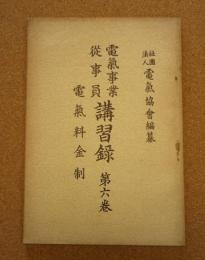 社団法人 電氣協會編纂
電氣事業從事員 講習錄 第六卷
電氣料金制